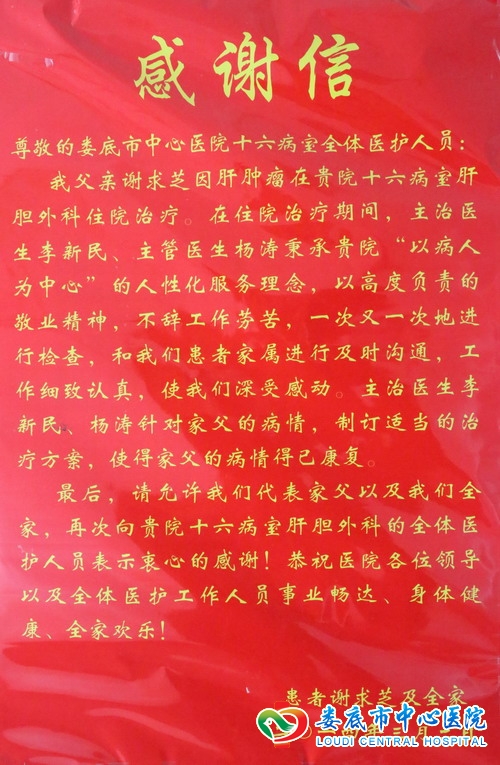 感谢信
尊敬的娄底市中心医院十六病室全体医护人员：
我父亲谢求芝因肝肿瘤在贵院十六病室肝
胆外科住院治疗。在住院治疗期间，主治医
生李新民、主管医生杨涛秉承贵院“以病人
为中心”的人性化服务理念，以高度负责的
敬业精神，不辞工作劳苦，一次又一次地进
行检查，和我们患者家属进行及时沟通，工
作细致认真，使我们深受感动。主治医生李
新民、杨涛针对家父的病情，制订适当的治
疗方案，使得家父的病情得已康复。
最后，请允许我们代表家父以及我们全
家，再次向贵院十六病室肝胆外科的全体医
护人员表示衷心的感谢！恭祝医院各位领导
以及全体医护工作人员事业畅达、身体健
康、全家欢乐！
患者谢求芝及全家
娄底市中心医院
LOUDI CENTRAL HOSPITAL